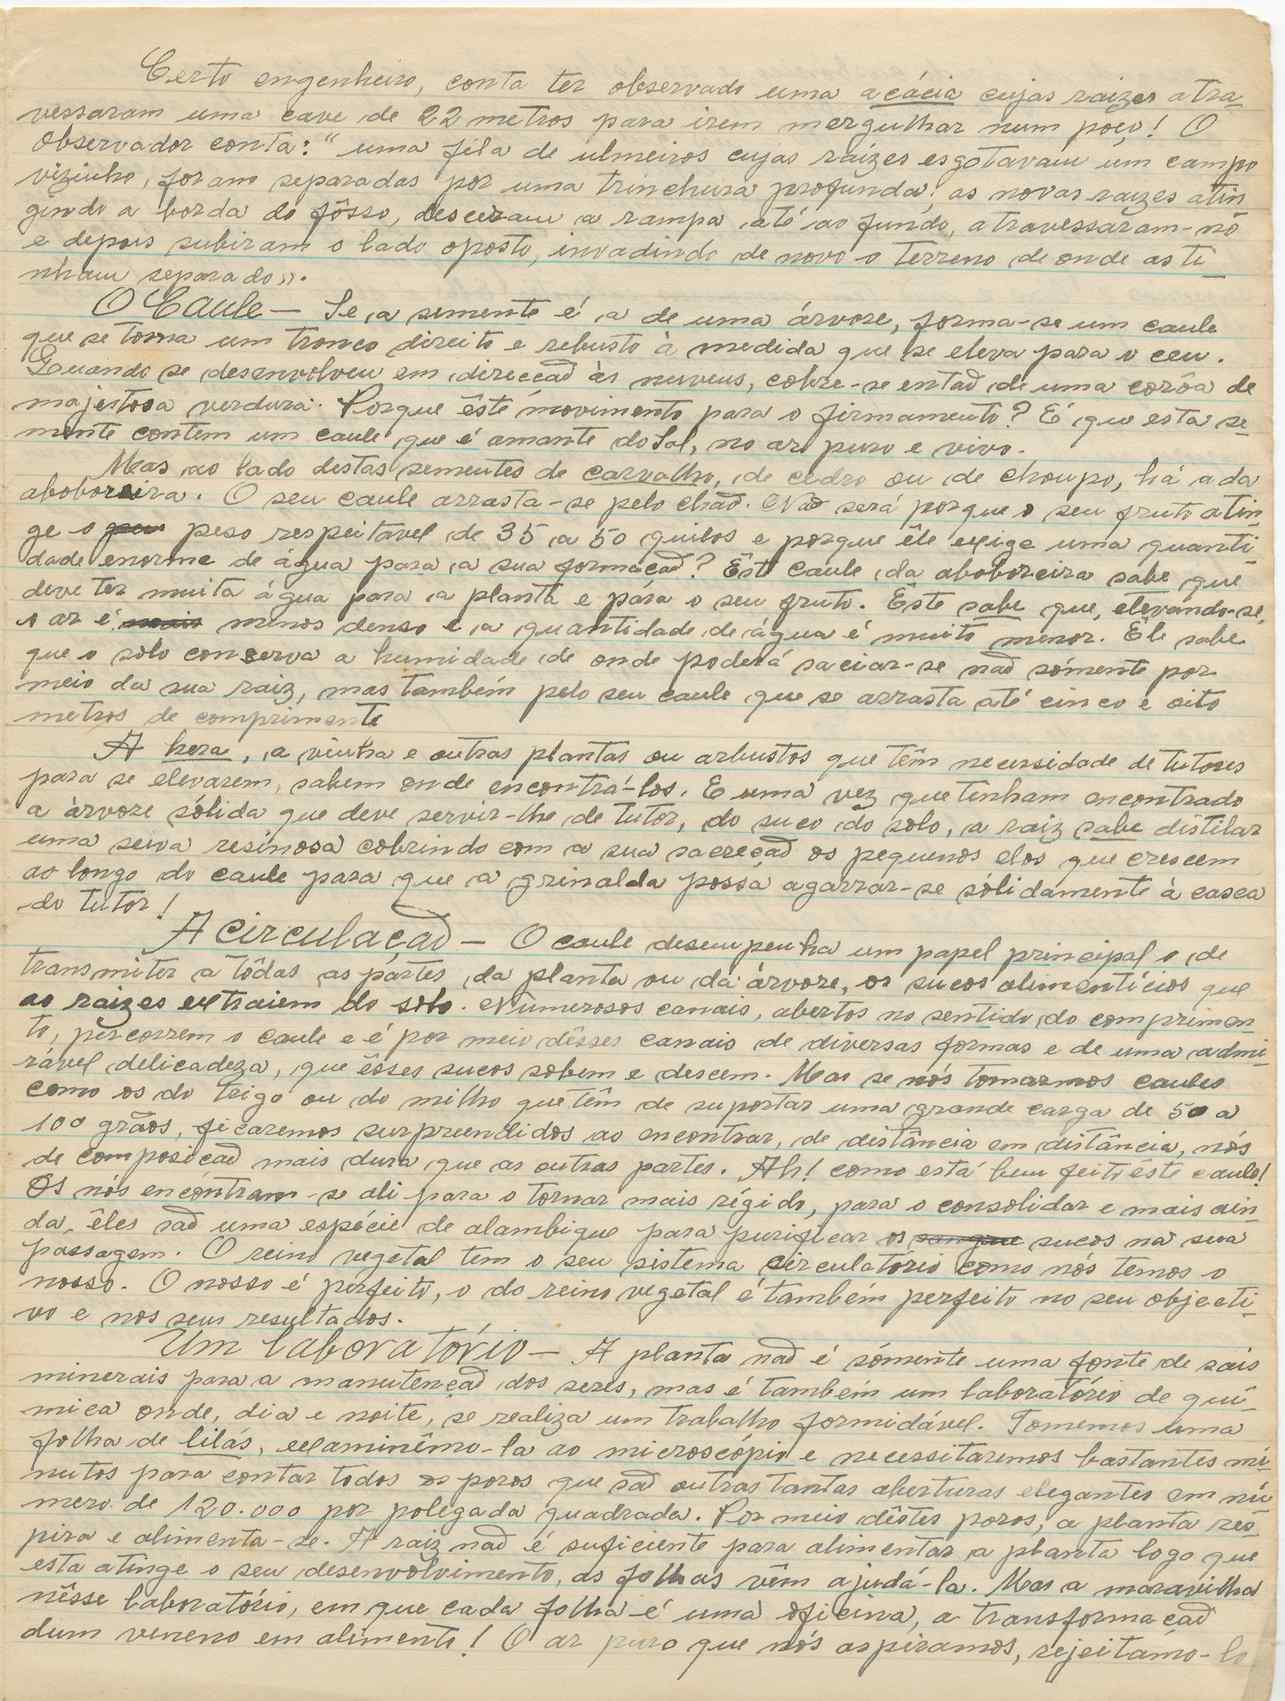 Certo engenheiro, conta ter observado uma acácia cujas raizes atra-
vessaram uma cave de 22 metros para irem mergulhar num poço! O
observador conta: "uma fila de ulmeiros cujas raízes esgotavam um campo
vizinho, foram separadas por uma trincheira profunda; as novas raizes atin
gindo a borda do fôsso, desceram a rampa até ao fundo, atravessaram-no
e depois subiram o lado oposto, invadindo de novo o terreno de onde as ti-
nham separado».
O Caule — Se a semente é a de uma árvore, forma-se um caule
que se torna um tronco direito e robusto à medida que se eleva para o ceu.
Quando se desenvolveu em direcção às nuvens, cobre-se então de uma corôa de
majestosa verdura. Porque êste movimento para o firmamento? É que esta se-
mente contem um caule que é amante do Sol, no ar puro e vivo.
Mas ao lado destas sementes de carvalho, de cedro ou de choupo, há a da
aboboreira. O seu caule arrasta-se pelo chão. Não será porque o seu fruto atin
ge o peso respeitável de 35 a 50 quilos e porque êle exige uma quanti
dade enorme de água para a sua formação? Êste caule da aboboreira sabe que
deve ter muita água para a planta e para o seu fruto. Este sabe que, elevando-se,
o ar é mais menos denso e a quantidade de água é muito menor. Êle sabe
que o solo conserva a humidade de onde poderá saciar-se não sómente por
meio da sua raiz, mas também pelo seu caule que se arrasta até cinco e oito
metros de comprimento
A hera, a vinha e outras plantas ou arbustos que têm necessidade de tutores
para se elevarem, sabem onde encontrá-los. E uma vez que tenham encontrado
a àrvore sólida que deve servir-lhe de tutor, do suco do solo, a raiz sabe distilar
uma seiva resinosa cobrindo com a sua sacreção os pequenos elos que crescem
ao longo do caule para que a grinalda possa agarrar-se sólidamente à casca
do tutor!
A circulação — O caule desempenha um papel principal o de
transmiter a tôdas as pártes da planta ou da árvore, os sucos alimentícios que
as raizes extraiem do solo. Numerosos canais, abertos no sentido do comprimen-
to, percorrem o caule e é por meio dêsses canais de diversas formas e de uma admi-
rável delicadeza, que êsses sucos sobem e descem. Mas se nós tomarmos caules
como os do trigo ou do milho que têm de suportar uma grande carga de 50 a
100 grãos, ficaremos surpreendidos ao encontrar, de distância em distância, nós
de composição mais dura que as outras partes. Ah! como está bem feito este caule!
Os nós encontram-se ali para o tornar mais rígido, para o consolidar e mais ain-
da, êles são uma espécie de alambique para purificar os sangue sucos na sua
passagem. O reino vegetal tem o seu sistema circulatório como nós temos o
nosso. O nosso é perfeito, o do reino vegetal é também perfeito no seu objecti-
vo e nos seus resultados.
Um laboratório — A planta não é sómente uma fonte de sais
minerais para a manutenção dos seres, mas é também um laboratório de quí-
mica onde, dia e noite, se realiza um trabalho formidável. Tomemos uma
folha de lilás, examinêmo-la ao microscópio e necessitaremos bastantes mi-
nutos para contar todos os poros que são outras tantas aberturas elegantes em nú
mero de 120.000 por polegada quadrada. Por meio dêstes poros, a planta res-
pira e alimenta-se. A raiz não é suficiente para alimentar a planta logo que
esta atinge o seu desenvolvimento, as folhas vêm ajudá-la. Mas a maravilha
nêsse laboratório, em que cada folha é uma oficina, a transformação
dum veneno em alimento! O ar puro que nós aspiramos, rejeitamo-lo